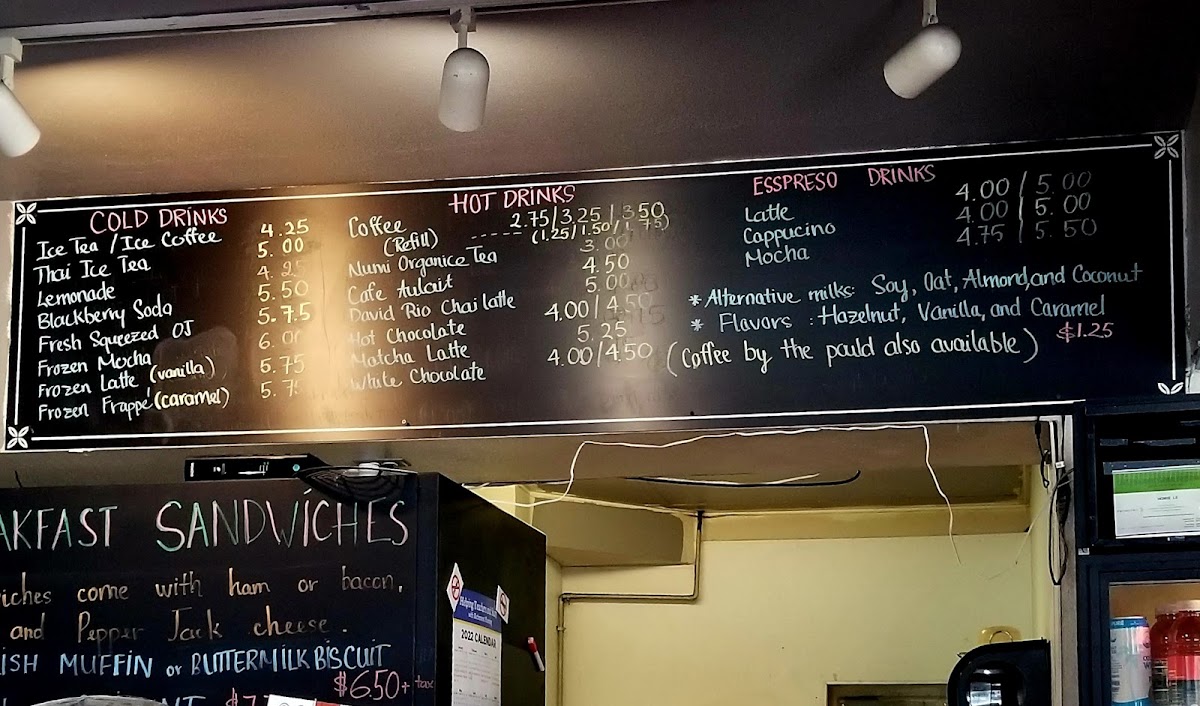 COLD DRINKS
Ice Tea / Ice Coffee 4.25
Thai Ice Tea 5.00
Lemonade 4.25
Blackberry Soda 5.50
Fresh Squeezed OJ 5.75
Frozen Mocha 6.00
Frozen Latte (vanilla) 5.75
Frozen Frappé (caramel) 5.75
HOT DRINKS
Coffee 2.75/3.25/3.50
(Refill) ----- (1.25/1.50/1.75)
Numi Organice Tea 3.00
Cafe Aulait 4.50
David Rio Chai latte 5.00
Hot Chocolate 4.00/4.50
Matcha Latte 5.25
White Chocolate 4.00/4.50
ESSPRESO DRINKS
Latte 4.00/5.00
Cappucino 4.00/5.00
Mocha 4.75/5.50
* Alternative milks: Soy, Oat, Almond, and Coconut
* Flavors : Hazelnut, Vanilla, and Caramel
$1.25
(Coffee by the pauld also available)
AKFAST SANDWICHES
iches come with ham or bacon,
and Pepper Jack cheese.
ISH MUFFIN or BUTTERMILK BISCUIT
$6.50 + tax
$7
2022 CALENDAR